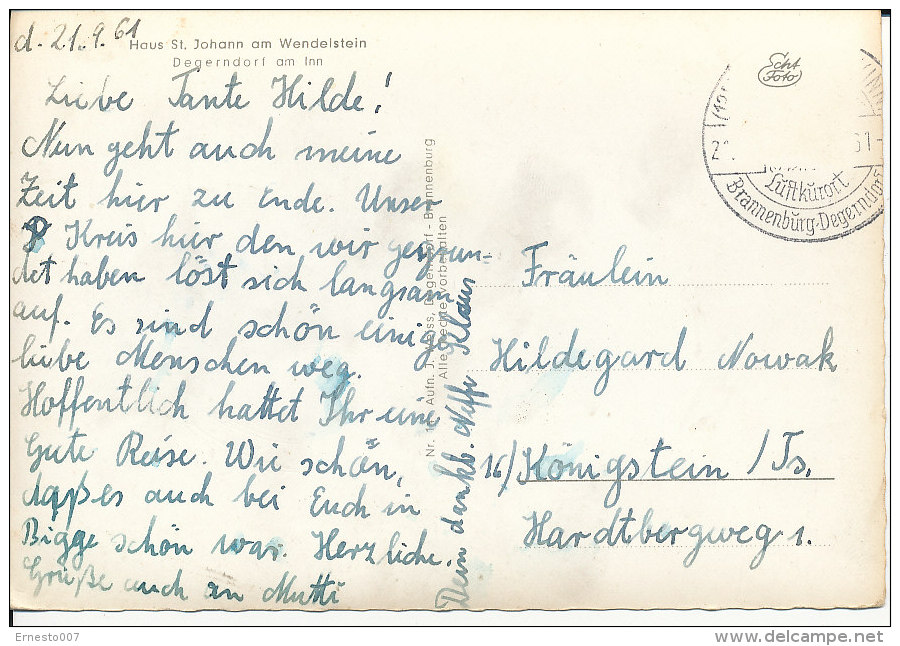 d. 21.9.61
Haus St. Johann am Wendelstein
Degerndorf am Inn
Liebe Tante Hilde!
Nun geht auch meine
Zeit hier zu Ende. Unser
Kreis hier den wir gegrün-
det haben löst sich langsam
auf. Es sind schön einige
liebe Menschen weg.
Hoffentlich hattet Ihr eine
Gute Reise. Wie schön,
daß es auch bei Euch in
Bigge schön war. Herzliche
Grüße auch an Mutti
Dein dankb. Neffe Klaus
Aufn. J. Degerndorf - Brannenburg
Alle Rechte vorbehalten
Echt
Foto
Luftkurort
Brannenburg-Degerndorf
Fräulein
Hildegard Nowak
16) Königstein / Ts.
Hardtbergweg 1.
Ernesto007
www.delcampe.net